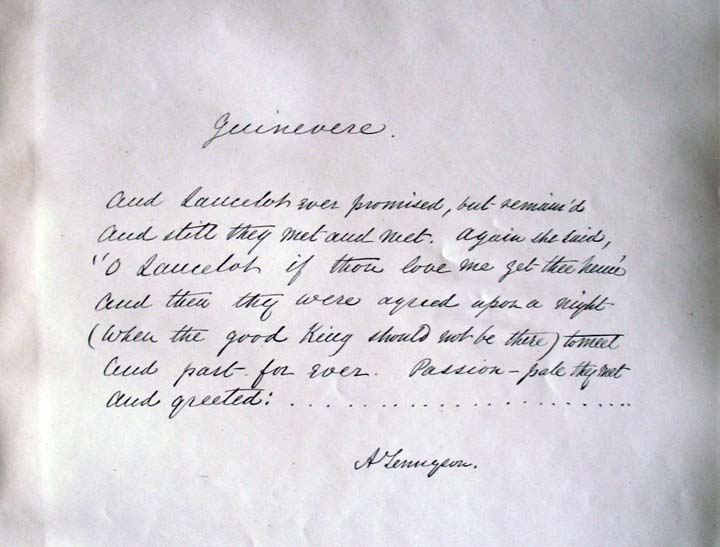 Guinevere.
And Lancelot ever promised, but remain'd
And still they met and met. Again she said,
"O Lancelot if thou love me get thee hence"
And then they were agreed upon a night
(When the good King should not be there) to meet
And part for ever. Passion-pale they met
And greeted: . . . . . . . . . . . . . . . . . . . . . .
A Tennyson.